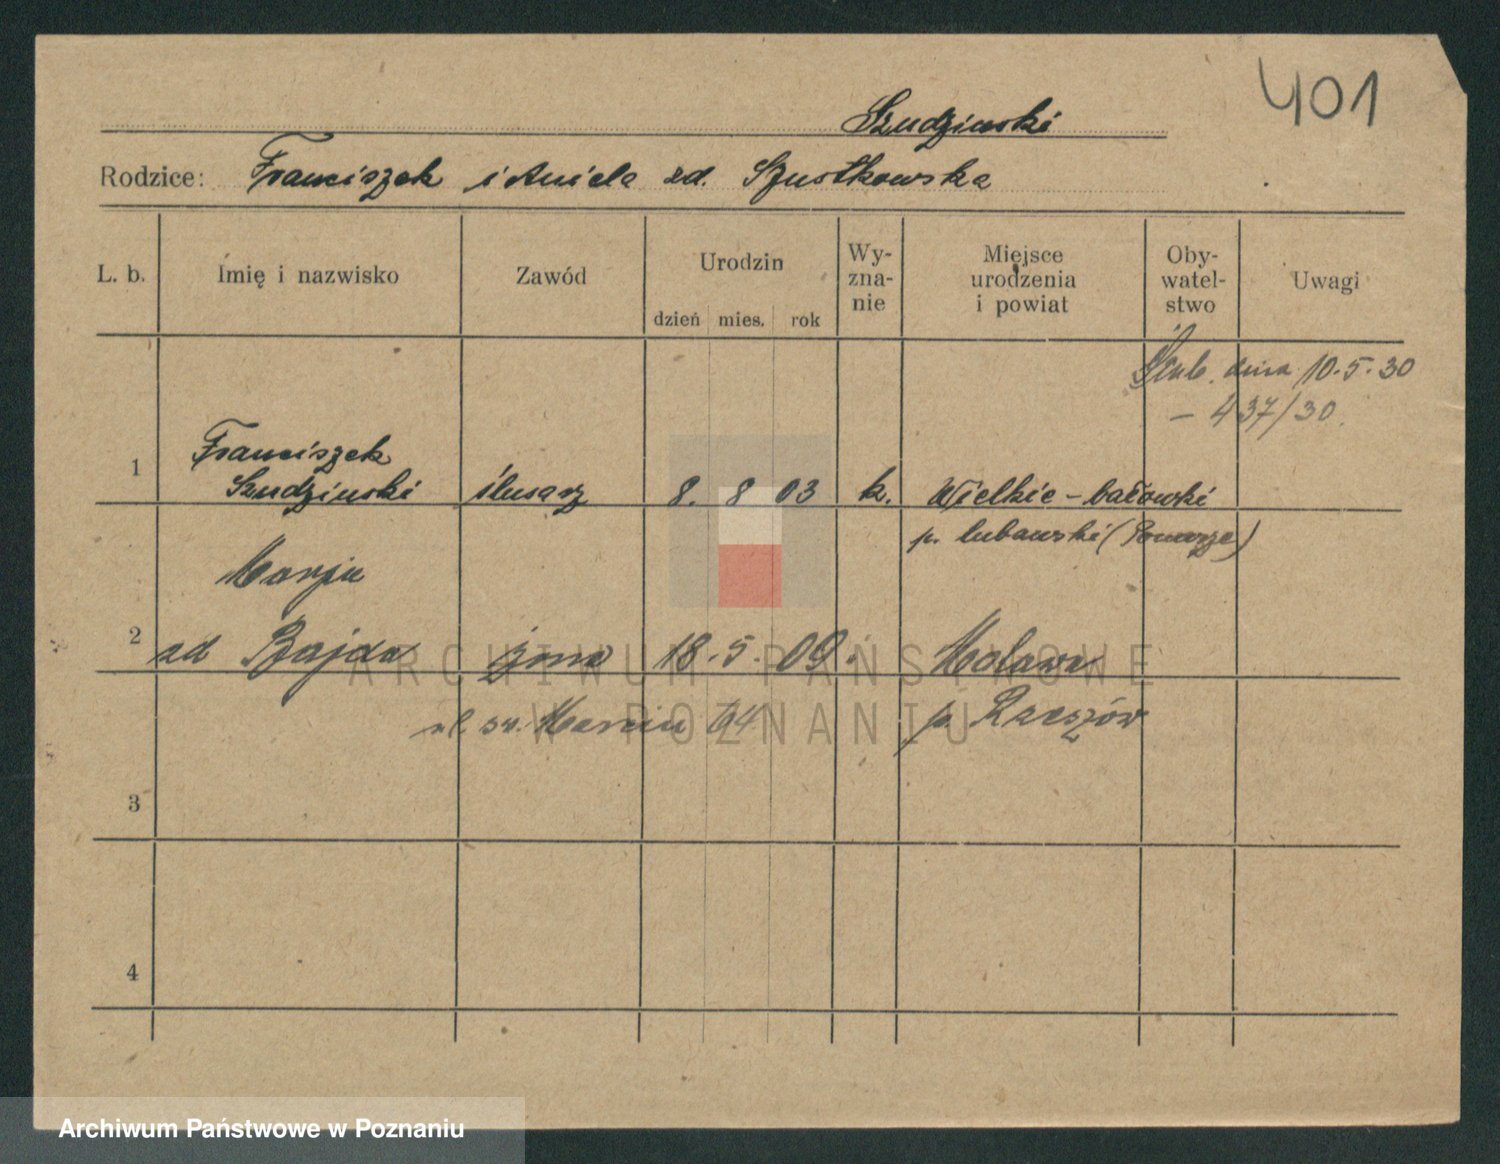 401
Szudzinski
Rodzice: Franciszek i Aniela zd. Szustkowska
L. b. Imię i nazwisko Zawód Urodzin Wy-zna-nie Miejsce urodzenia i powiat Oby-watel-stwo Uwagi
dzień mies. rok
Ślub. dnia 10.5.30
– 437/30.
1 Franciszek
Szudzinski ślusarz 8. 8 03 k. Wielkie-bałowki
p. lubawski (Pomorze)
Marja
2 zd Bajda żona 18. 5. 09.
p. Rzeszów
ul. św. Marcin 64
3
4
ARCHIWUM PAŃSTWOWE
W POZNANIU
Archiwum Państwowe w Poznaniu